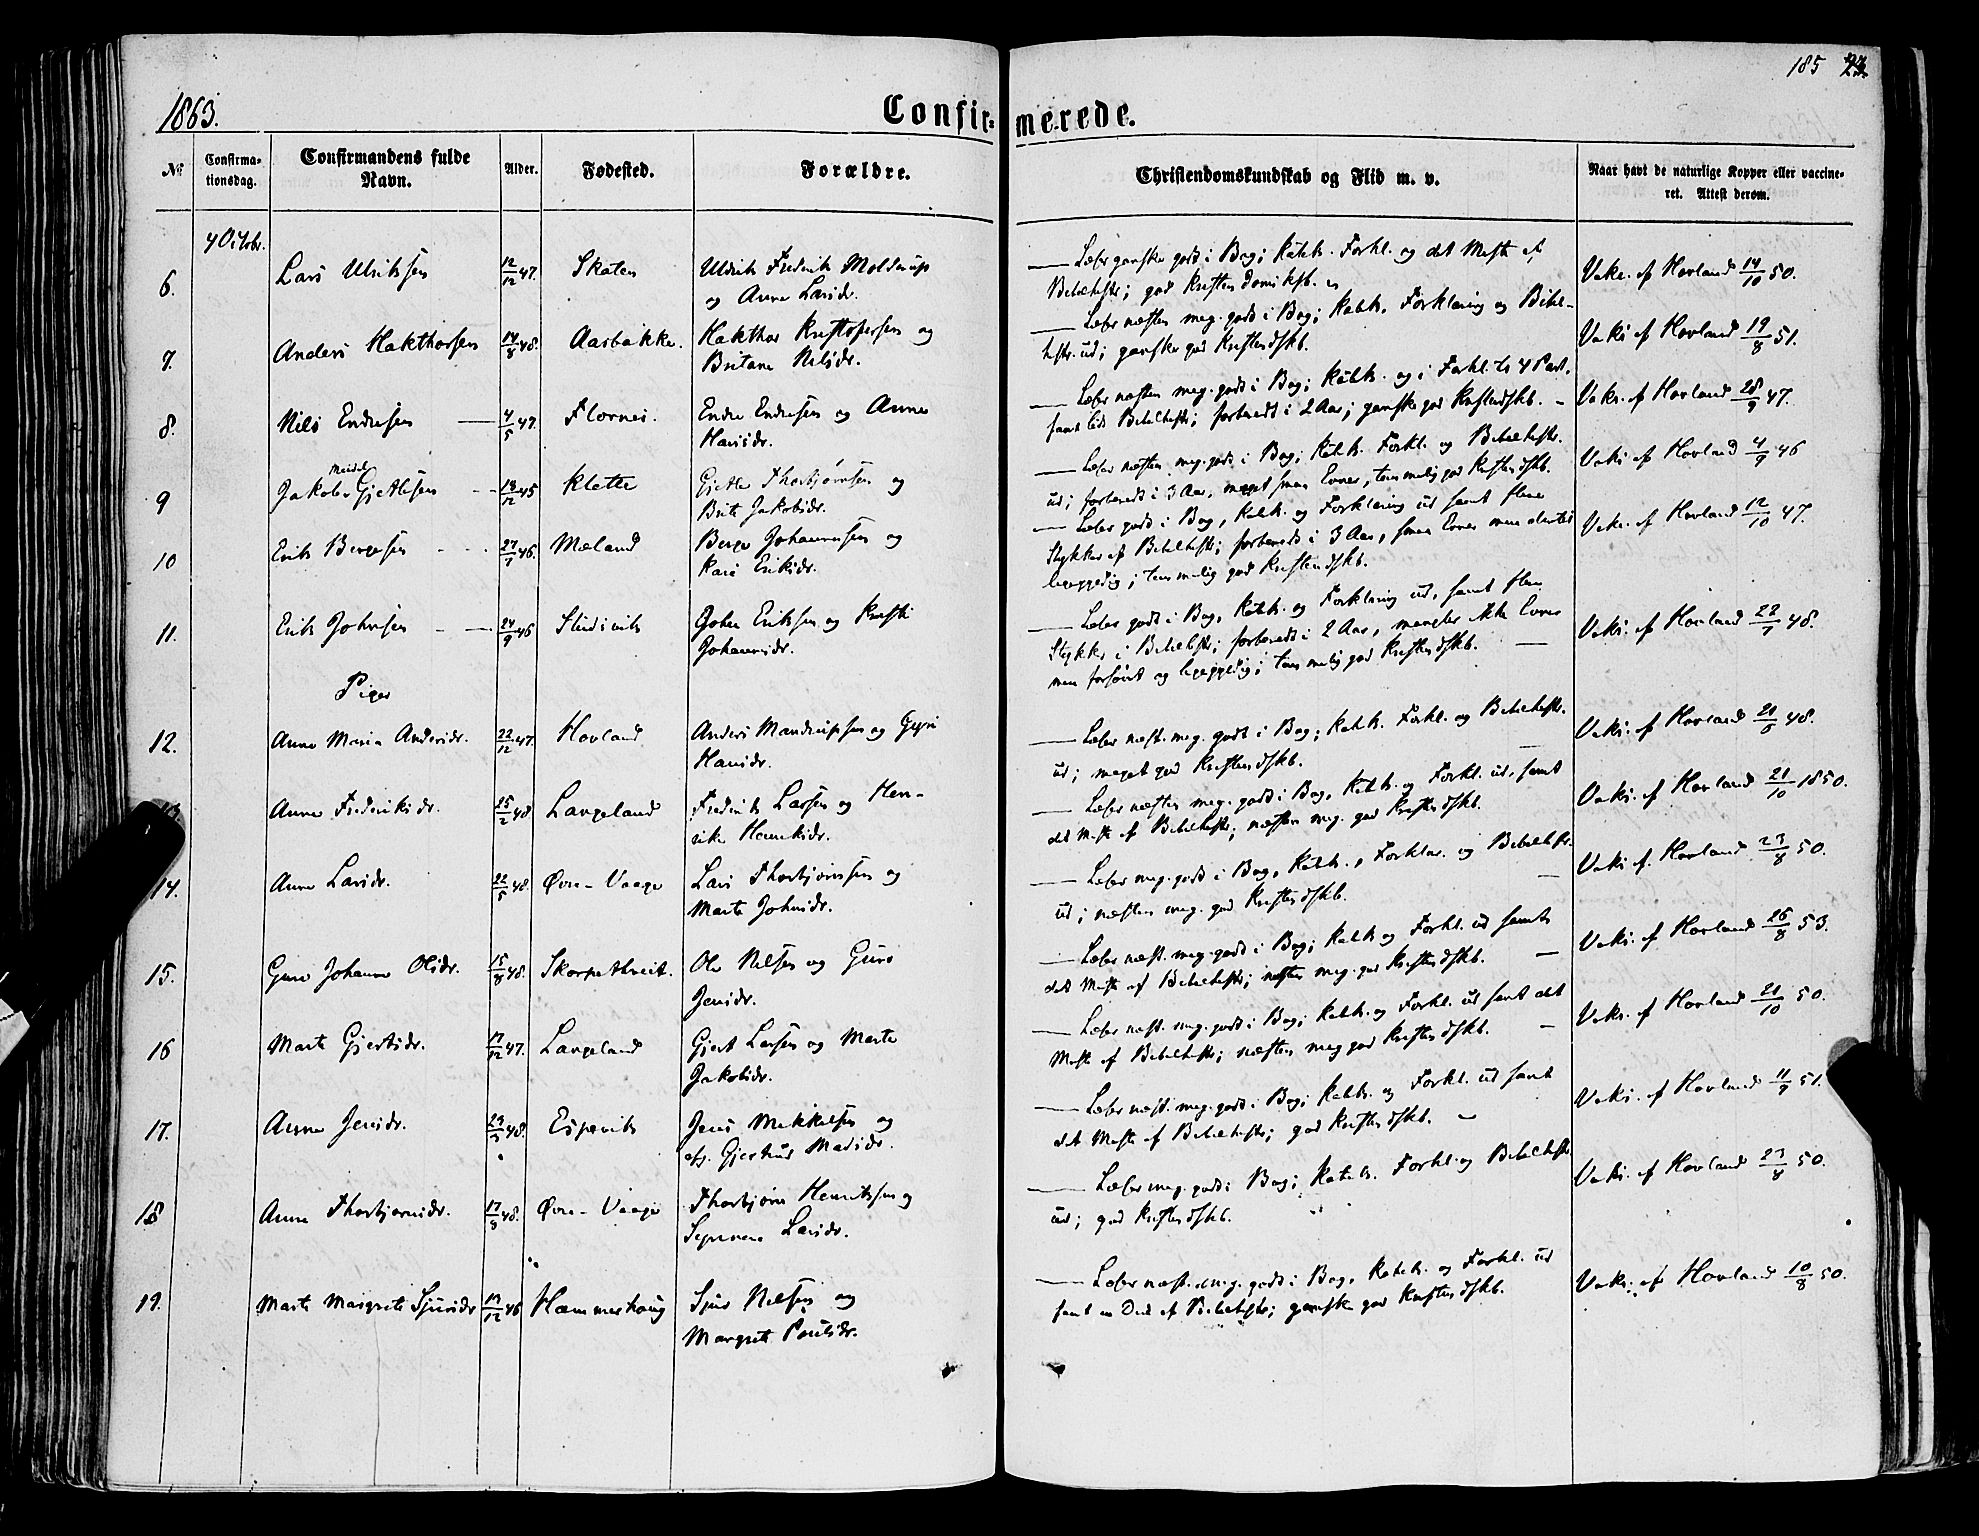 185
1863.
Confir= merede.
№
Confirma=
tionsdag.
Confirmandens fulde
Navn.
Alder.
Fødested.
Forældre.
Christendomskundskab og Flid m. v.
Naar havt de naturlige Kopper eller vaccine=
ret. Attest derom.
4 Octobr.
6.
Lars Ulriksen
12/12 47.
Skaten
Uldrik Fredrik Molderup
og Anne Larsdr.
— Læser ganske godt i Bog; Katek. Forkl. og det Meste af
Bibelhistr; god Kristendomskb.
Vakc. af Hovland 14/10 50.
7.
Anders Hakthorsen
14/8 48.
Aasbakke.
Hakthor Kristofersen og
Britane Nilsdr.
— Læser næsten meg. godt i Bog; Katek. Forklaring og Bibel-
histr. ud; ganske god Kristendskb.
Vaks. af Hovland 19/8 51.
8.
Nils Endresen —
4/5 47.
Flornes.
Endre Endresen og Anne
Hansdr.
— Læser næsten meg. godt i Bog; Katek. og i Forkl. til 4 Part,
samt lidt Bibelhistr; forberedt i 2 Aar; ganske god Kristendskb. –
Vaks. af Hovland 28/9 47.
9
Jakob Gjertsen
18/12 45
Klette
Thorbjørnsen og
Brite Jakobsdr.
— Læser næsten meg. godt i Bog; Katek. Forkl. og Bibelhistr.
ud; forberedt i 3 Aar, meget smaa Evner, temmelig god Kristendskb.
Vaks af Hovland 4/9 46
10
Erik Bergesen
27/7 46.
Mæland
Berge Johannesen og
Kari Eriksdr.
— Læser godt i Bog, Katek. og Forklaring ud samt flere
Stykker af Bibelhistr; forberedt i 3 Aar, smaa Evner men
; temmelig god Kristendskb.
Vaks. af Hovland 12/10 47.
11.
Erik Johnsen
24/9 46
Studsvik
John Eriksen og Kristi
Johannsdr.
— Læser godt i Bog, Katek. og Forklaring ud, samt flere
Stykker i Bibelhistr; forberedt i 2 Aar, mangler ikke Evner
men forsømt og ligegyldig; temmelig god Kristendskb. —
Vaks. af Hovland 22/7 48.
Piger
12.
Anne Maria Andersdr.
22/12 47.
Hovland
Anders Mandrupsen og Gyri
Hansdr.
— Læser næst. meg. godt i Bog; Katek. Forkl. og Bibelhistr.
ud; meget god Kristendskb. —
Vaks. af Hovland 21/8 48.
13.
Anne Frederiksdr.
25/2 48
Langeland
Fredrik Larsen og Hen-
rike Henriksdr.
— Læser næsten meg. godt i Bog, Katek. og Forkl. ud, samt
det Meste af Bibelhistr; næsten meg. god Kristendskb.
Vaks. af Hovland 21/10 1850.
14.
Anne Larsdr.
22/5 48.
Øvre-Vaage
Lars Thorbjørnsen og
Marte Johnsdr.
— Læser meg. godt i Bog, Katek., Forklar. og Bibelhistr.
ud; næsten meg. god Kristendskb. —
Vaks. af Hovland 23/8 50.
15.
Guro Johanne Olsdr.
15/8 48.
Skorpethveit.
Ole Nilsen og Guro
Jensdr.
— Læser næst. meg. godt i Bog; Katek og Forkl. ud samt
det Meste af Bibelhistr; næsten meg. god Kristendskb. —
Vaks. af Hovland 26/8 53.
16
Marte Gjertsdr.
17/12 47.
Langeland
Gjert Larsen og Marte
Jakobsdr.
— Læser næst. meg. godt i Bog; Katek. og Forkl. ud samt det
Meste af Bibelhistr; næsten meg god Kristendskb. –
Vaks. af Hovland 21/10 50.
17.
Anne Jensdr.
48.
Espevik
Jens Mikkelsen og
Gjertrud Madsdr.
— Læser næst. meg. godt i Bog; Katek. og Forkl. ud samt
det Meste af Bibelhistr; god Kristendskb. –
Vaks. af Hovland 11/9 51.
18
Anne Thorbjørnsdr.
17/8 48.
Øvre-Vaage
Thorbjørn Henriksen og
Larsdr.
— Læser meg. godt i Bog; Katek. Forkl. og Bibelhistr
ud; god Kristendskb.
Vaks. af Hovland 23/8 50.
19.
Marte Margrete Sjursdr
17/12 46
Hammerhoug
Sjur Nilsen og
Margrete Poulsdr.
— Læser næst. meg. godt i Bog, Katek. og Forkl. ud
samt en Deel af Bibelhistr; ganske god Kristendskb.
Vaks. af Hovland 10/8 50.